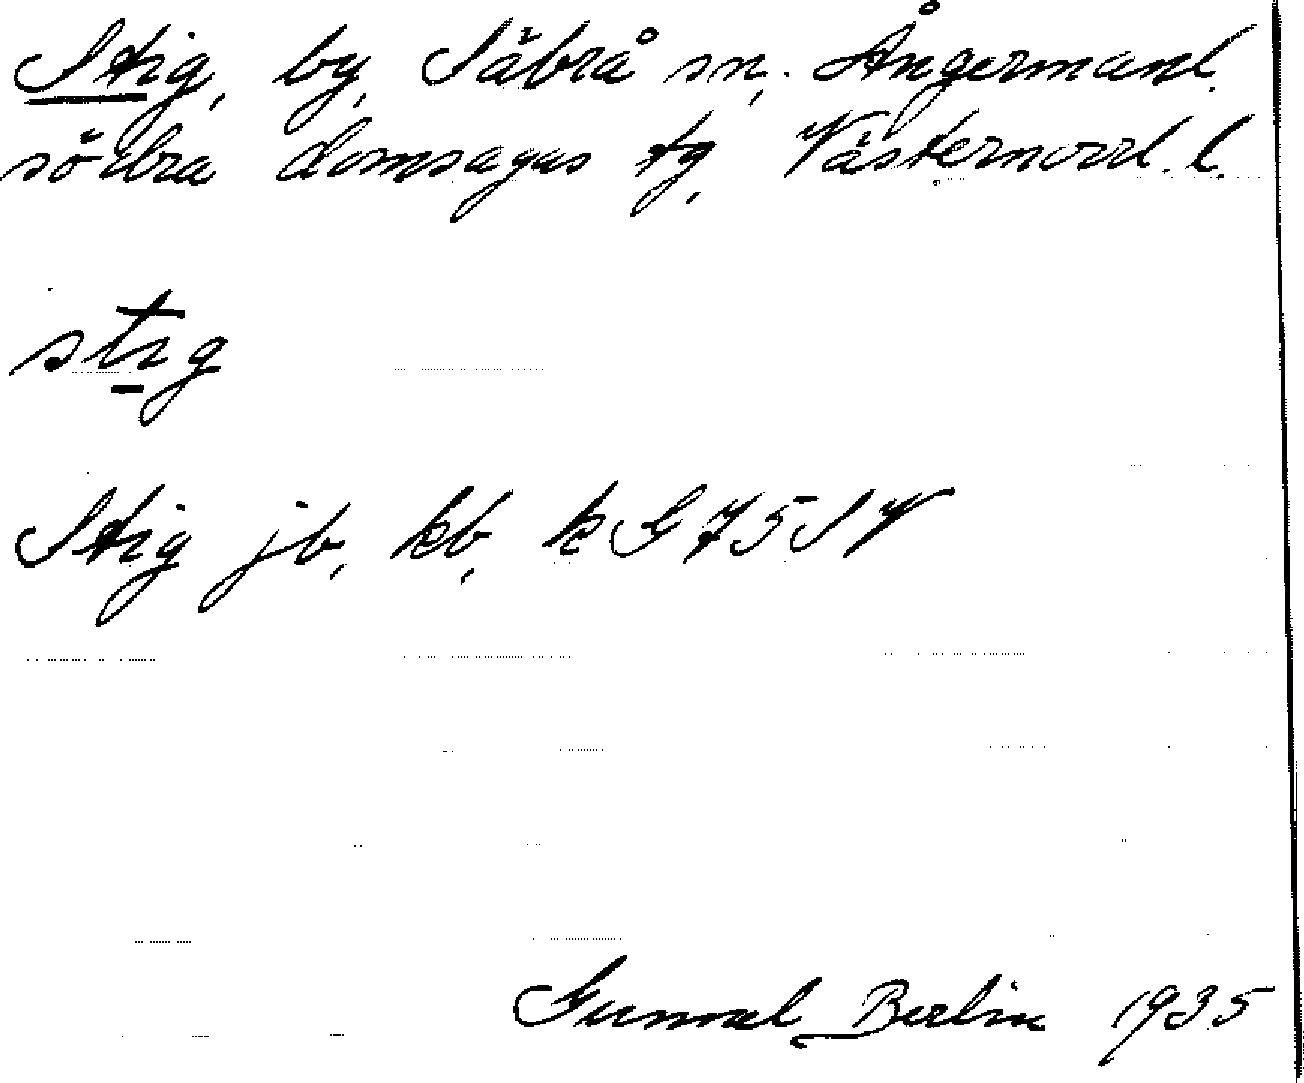 Stig, by, Säbrå sn, Ångermanl.
södra domsagas tg, Västernorrl. l.
stig
Stig jb, kb, k G 75 S V
Gunnal Berlin 1935